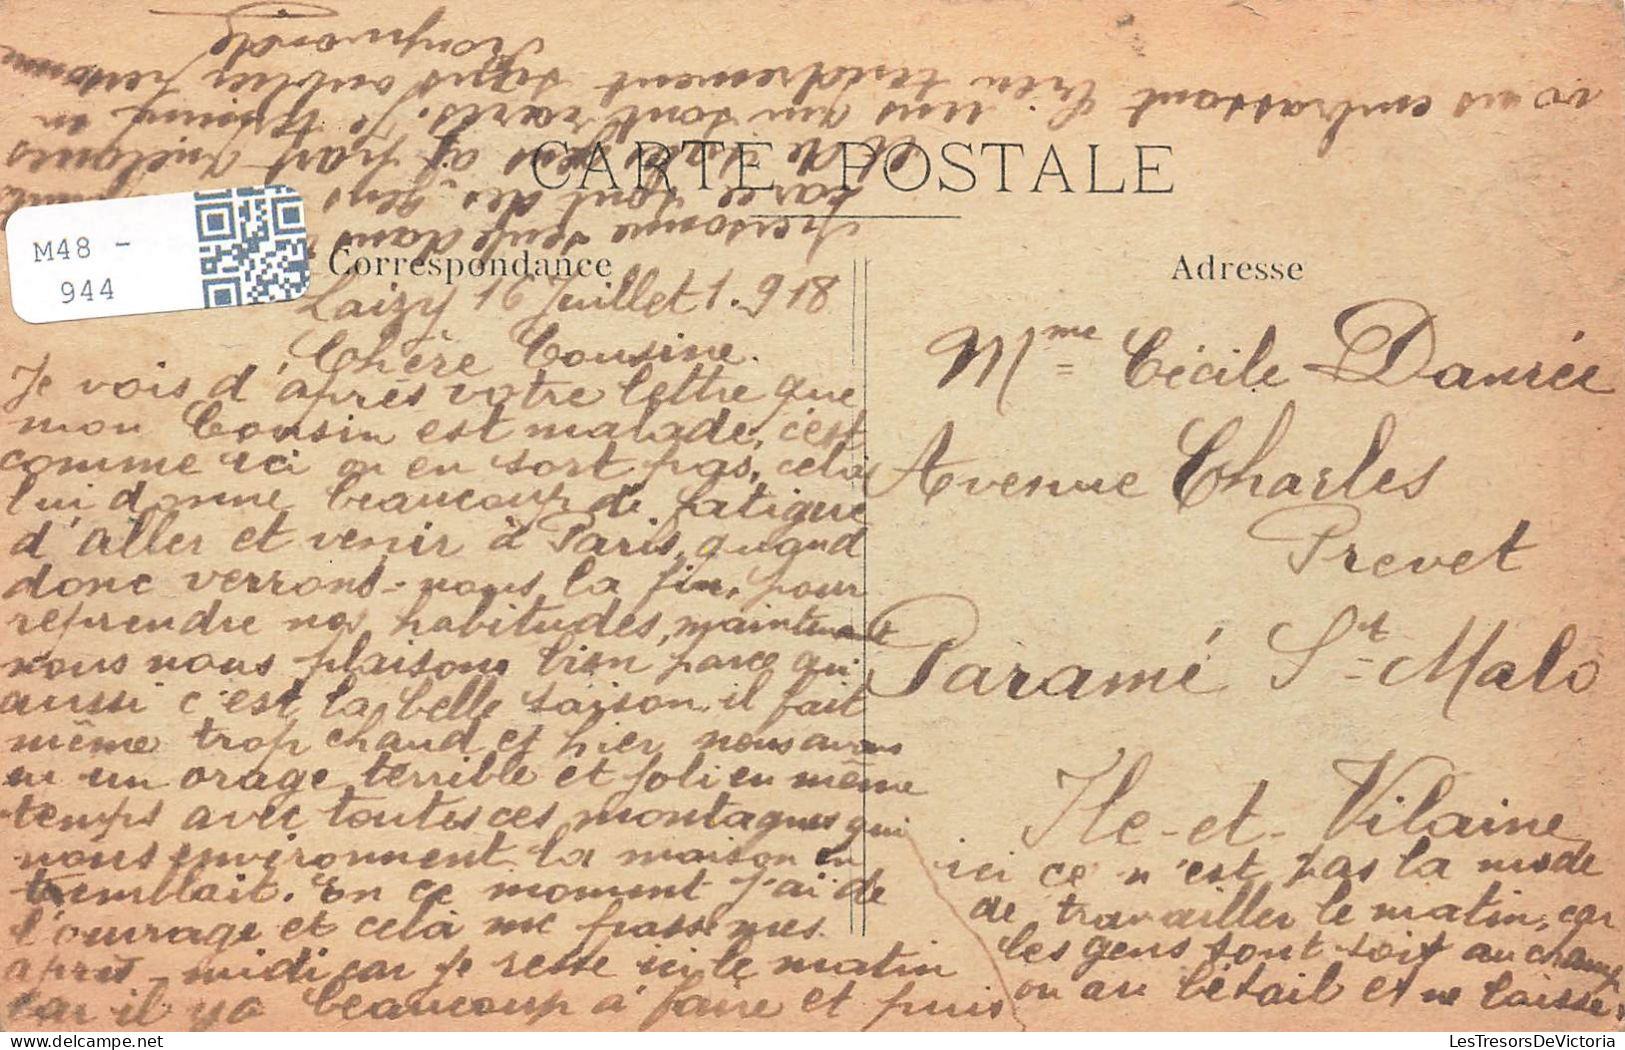 CARTE POSTALE
Correspondance
Adresse
M48 -
944
Laizy 16 Juillet 1.918
Chère Cousine.
Je vois d'après votre lettre que
mon Cousin est malade, c'est
comme ici on en sort pas, celà
lui donne beaucoup de fatigue
d'aller et venir à Paris, quand
donc verrons-nous la fin, pour
reprendre nos habitudes, maintenant
nous nous plaisons bien parce qui
aussi c'est la belle saison il fait
même trop chaud et hier nous avons
eu un orage terrible et joli en même
temps avec toutes ces montagnes qui
nous environnent la maison en
tremblait. En ce moment j'ai de
l'ouvrage et celà me passe mes
après-midi car je reste ici le matin
car il y a beaucoup à faire et puis
ici ce n'est pas la mode
de travailler le matin, car
les gens sont soit au champ
ou au bétail et ne laisse
personne seule dans
car ce sont des gens
et de sales gens à part quelques
uns qui sont rares. Je termine en
vous embrassant bien tendrement sans oublier personne
Raymonde
Mme Cécile Danrée
Avenue Charles
Prevet
Paramé St-Malo
Ile-et-Vilaine
LesTresorsDeVictoria.com